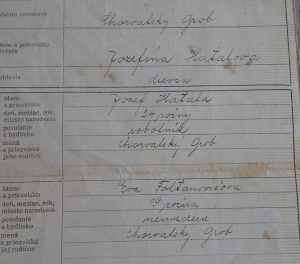 Miesto narodenia
Chorvatsky Grob
a priezvisko
Jozefína Hatalova
dievča
Meno
a priezvisko
deň, mesiac, rok,
miesto narodenia
povolanie
a bydlisko
mená
a priezviská
jeho rodičov
Jozef Hatala
24 ročný
robotník
Chorvatsky Grob
Meno
a priezvisko
deň, mesiac, rok,
miesto narodenia
povolanie
a bydlisko
mená
a priezviská
jej rodičov
Eva Foltanovičova
19 ročná
Chorvatsky Grob